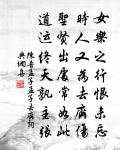 女樂之行恨未忘
時人又為去齊傷
聖賢出處常如此
道運終天孰主張
陳普孟子孟子去齊詞
典網集